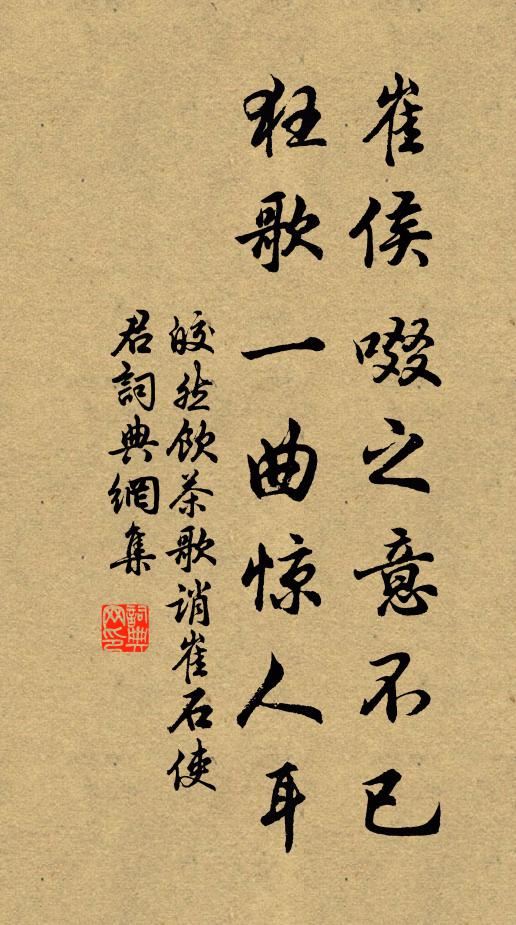 崔侯啜之意不已
狂歌一曲惊人耳
皎然饮茶歌诮崔石使
君詞典網集
詞典
网印